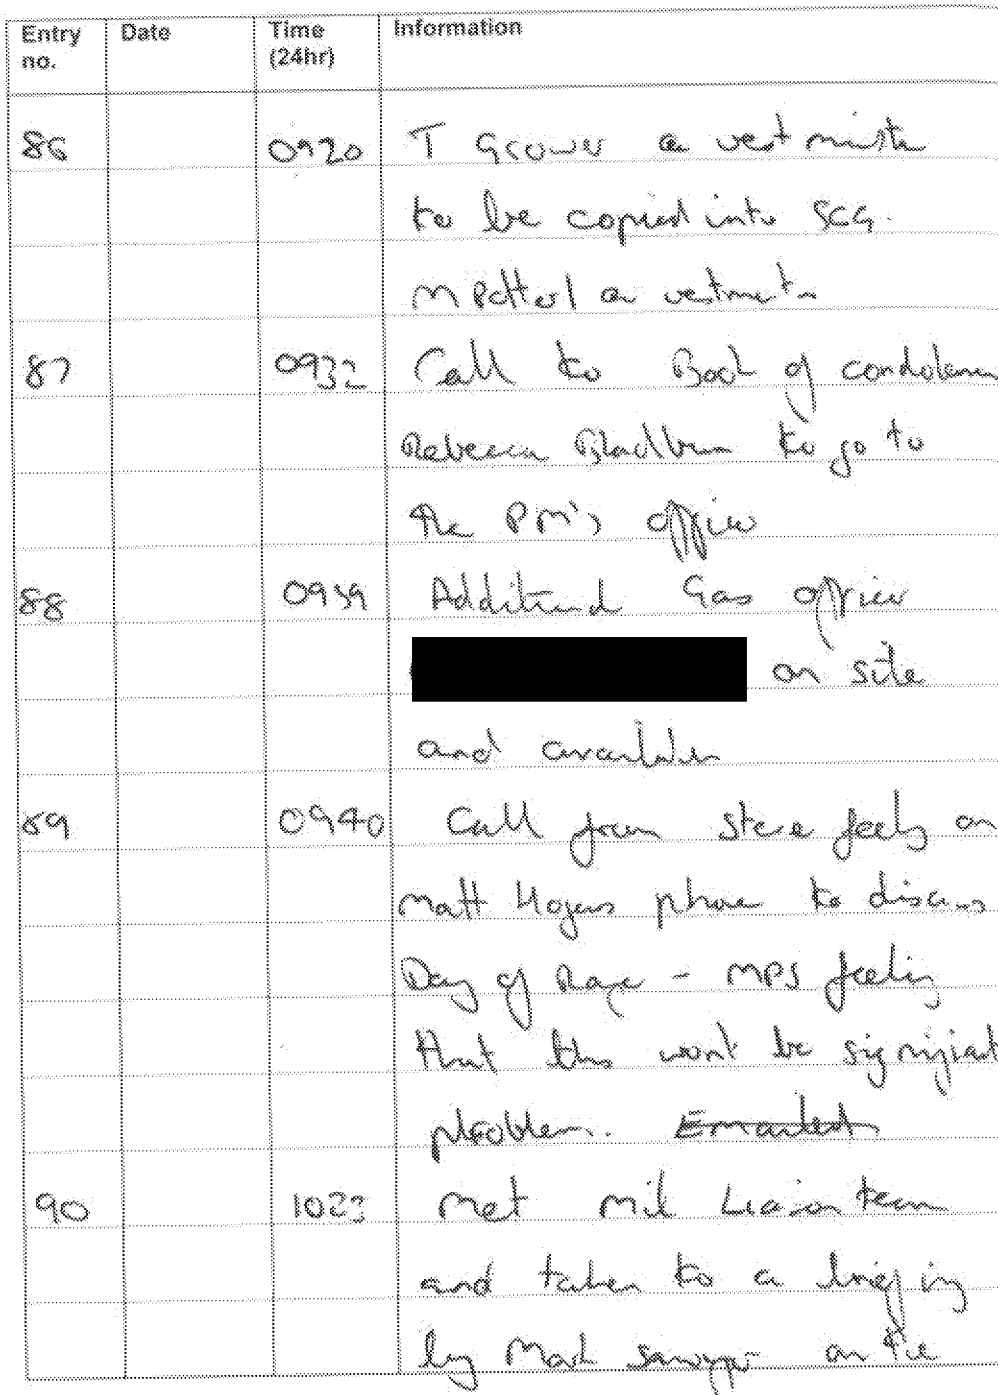 Entry no. Date Time (24hr) Information
86 0920 T Grover @ westminster
to be copied into SCG.
M Potterl @ westminster
87 0932 Call to Book of condolence
Rebecca Blackburn to go to
the PM's office
88 0939 Additional Gas officer
on site
and available
89 0940 Call from Steve feely on
Matt Hogans phone to discuss
Day of Rage - MPS feeling
that this wont be significant
problem. Emailed
90 1023 Met Mil Liaison team
and taken to a briefing
by Mark Sawyer on the